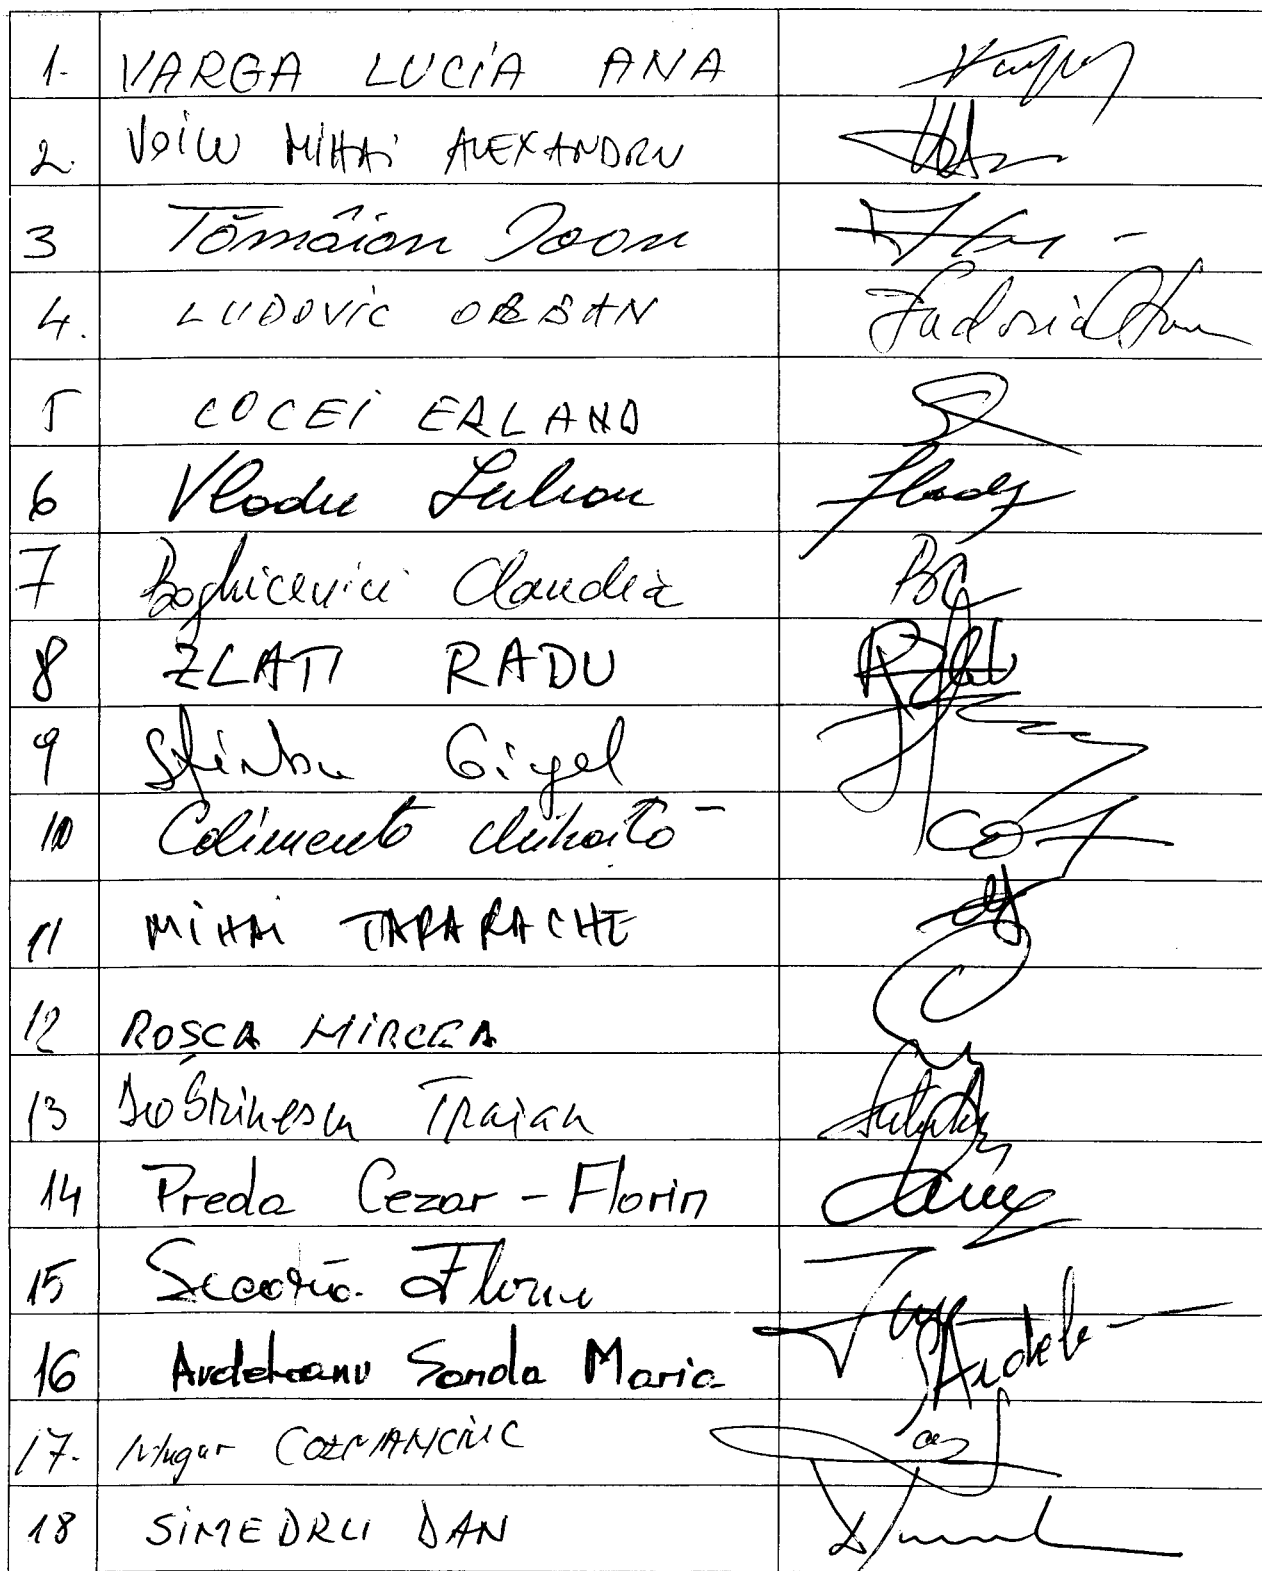 1. VARGA LUCIA ANA
2. VOICU MIHAI ALEXANDRU
3 Tămâian Ioan
4. LUDOVIC ORBAN
5 COCEI ERLAND
6 Vladu Iulian
7 Boghicevici Claudia
8 ZLATI RADU
9 Știrbu Gigel
10 Calimente Mihăiță
11 MIHAI TAPARACHE
12 ROȘCA MIRCEA
13 Dobrinescu Traian
14 Preda Cezar-Florin
15 Secară Florin
16 Ardeleanu Sanda Maria
17. Mugur COZMANCIUC
18 SIMEDRU DAN